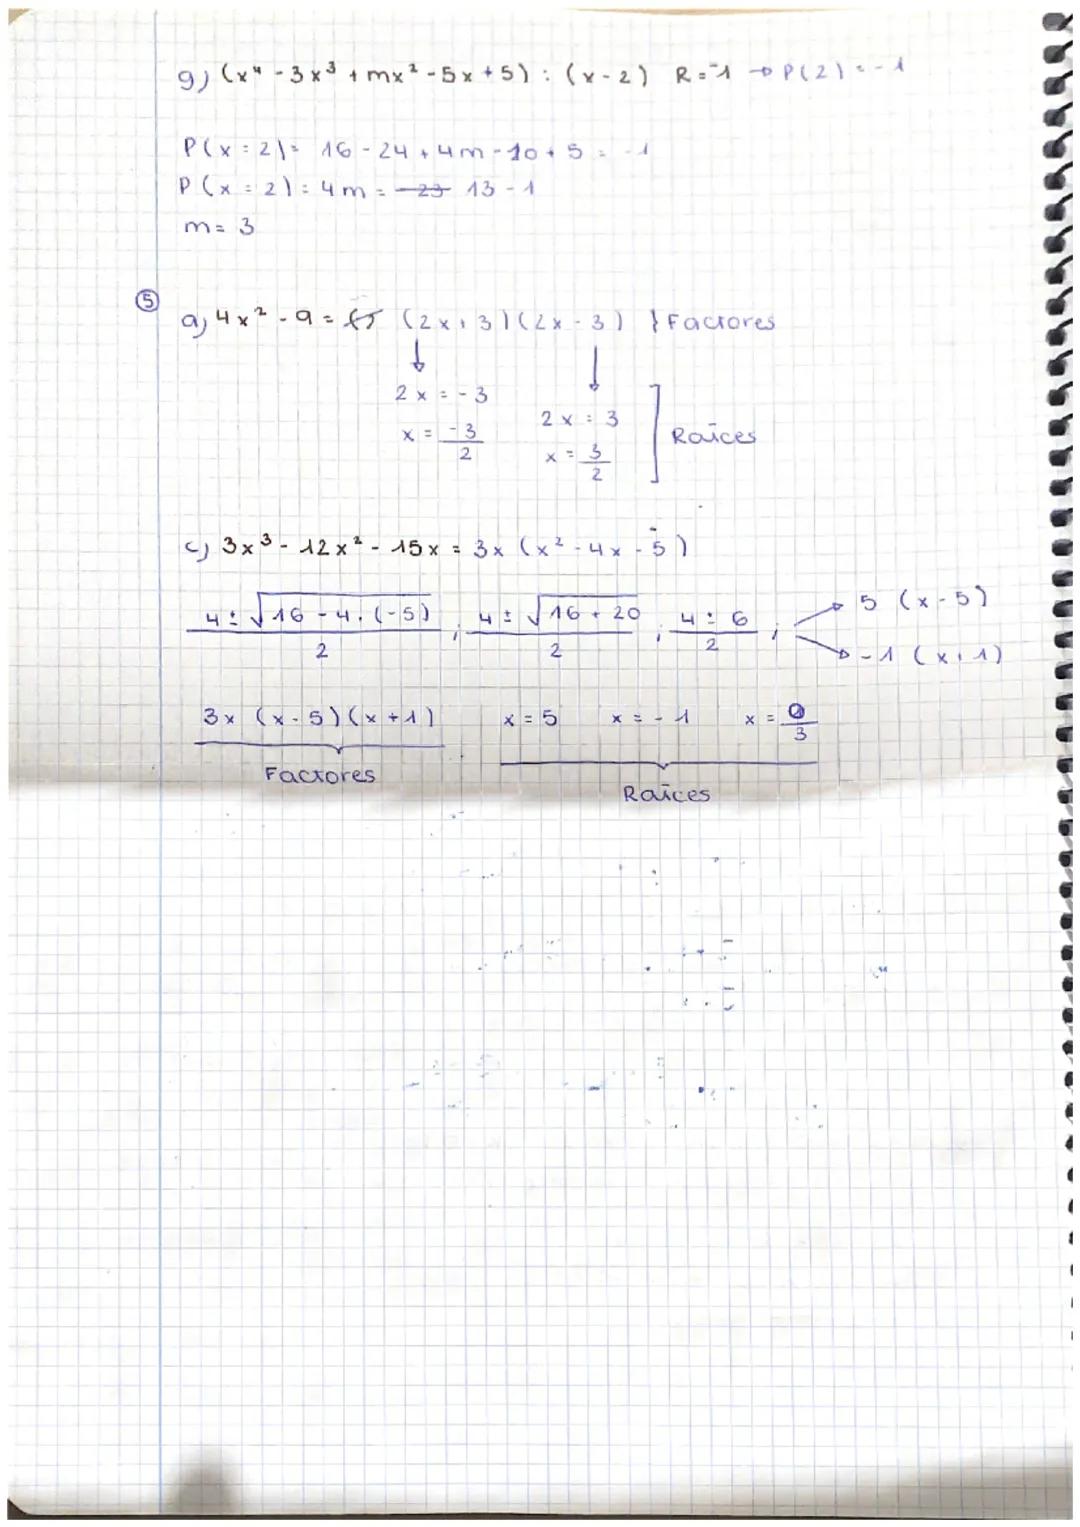 g) (x⁴ - 3x³ + mx² - 5x + 5) : (x - 2) R = -1 → P(2) = -1
P(x = 2) = 16 - 24 + 4m - 10 + 5 = -1
P(x = 2) : 4m = -23 13 - 1
m = 3
⑤
a) 4x² - 9 = (2x + 3)(2x - 3) } Factores
2x = -3
2x = 3
x = -3/2
x = 3/2
Raíces
c) 3x³ - 12x² - 15x = 3x (x² - 4x - 5)
4 ± √16 - 4 · (-5) / 2 ; 4 ± √16 + 20 / 2 ; 4 ± 6 / 2 ; 5 (x - 5)
-1 (x + 1)
3x (x - 5)(x + 1) x = 5 x = -1 x = 0/3
Factores
Raíces